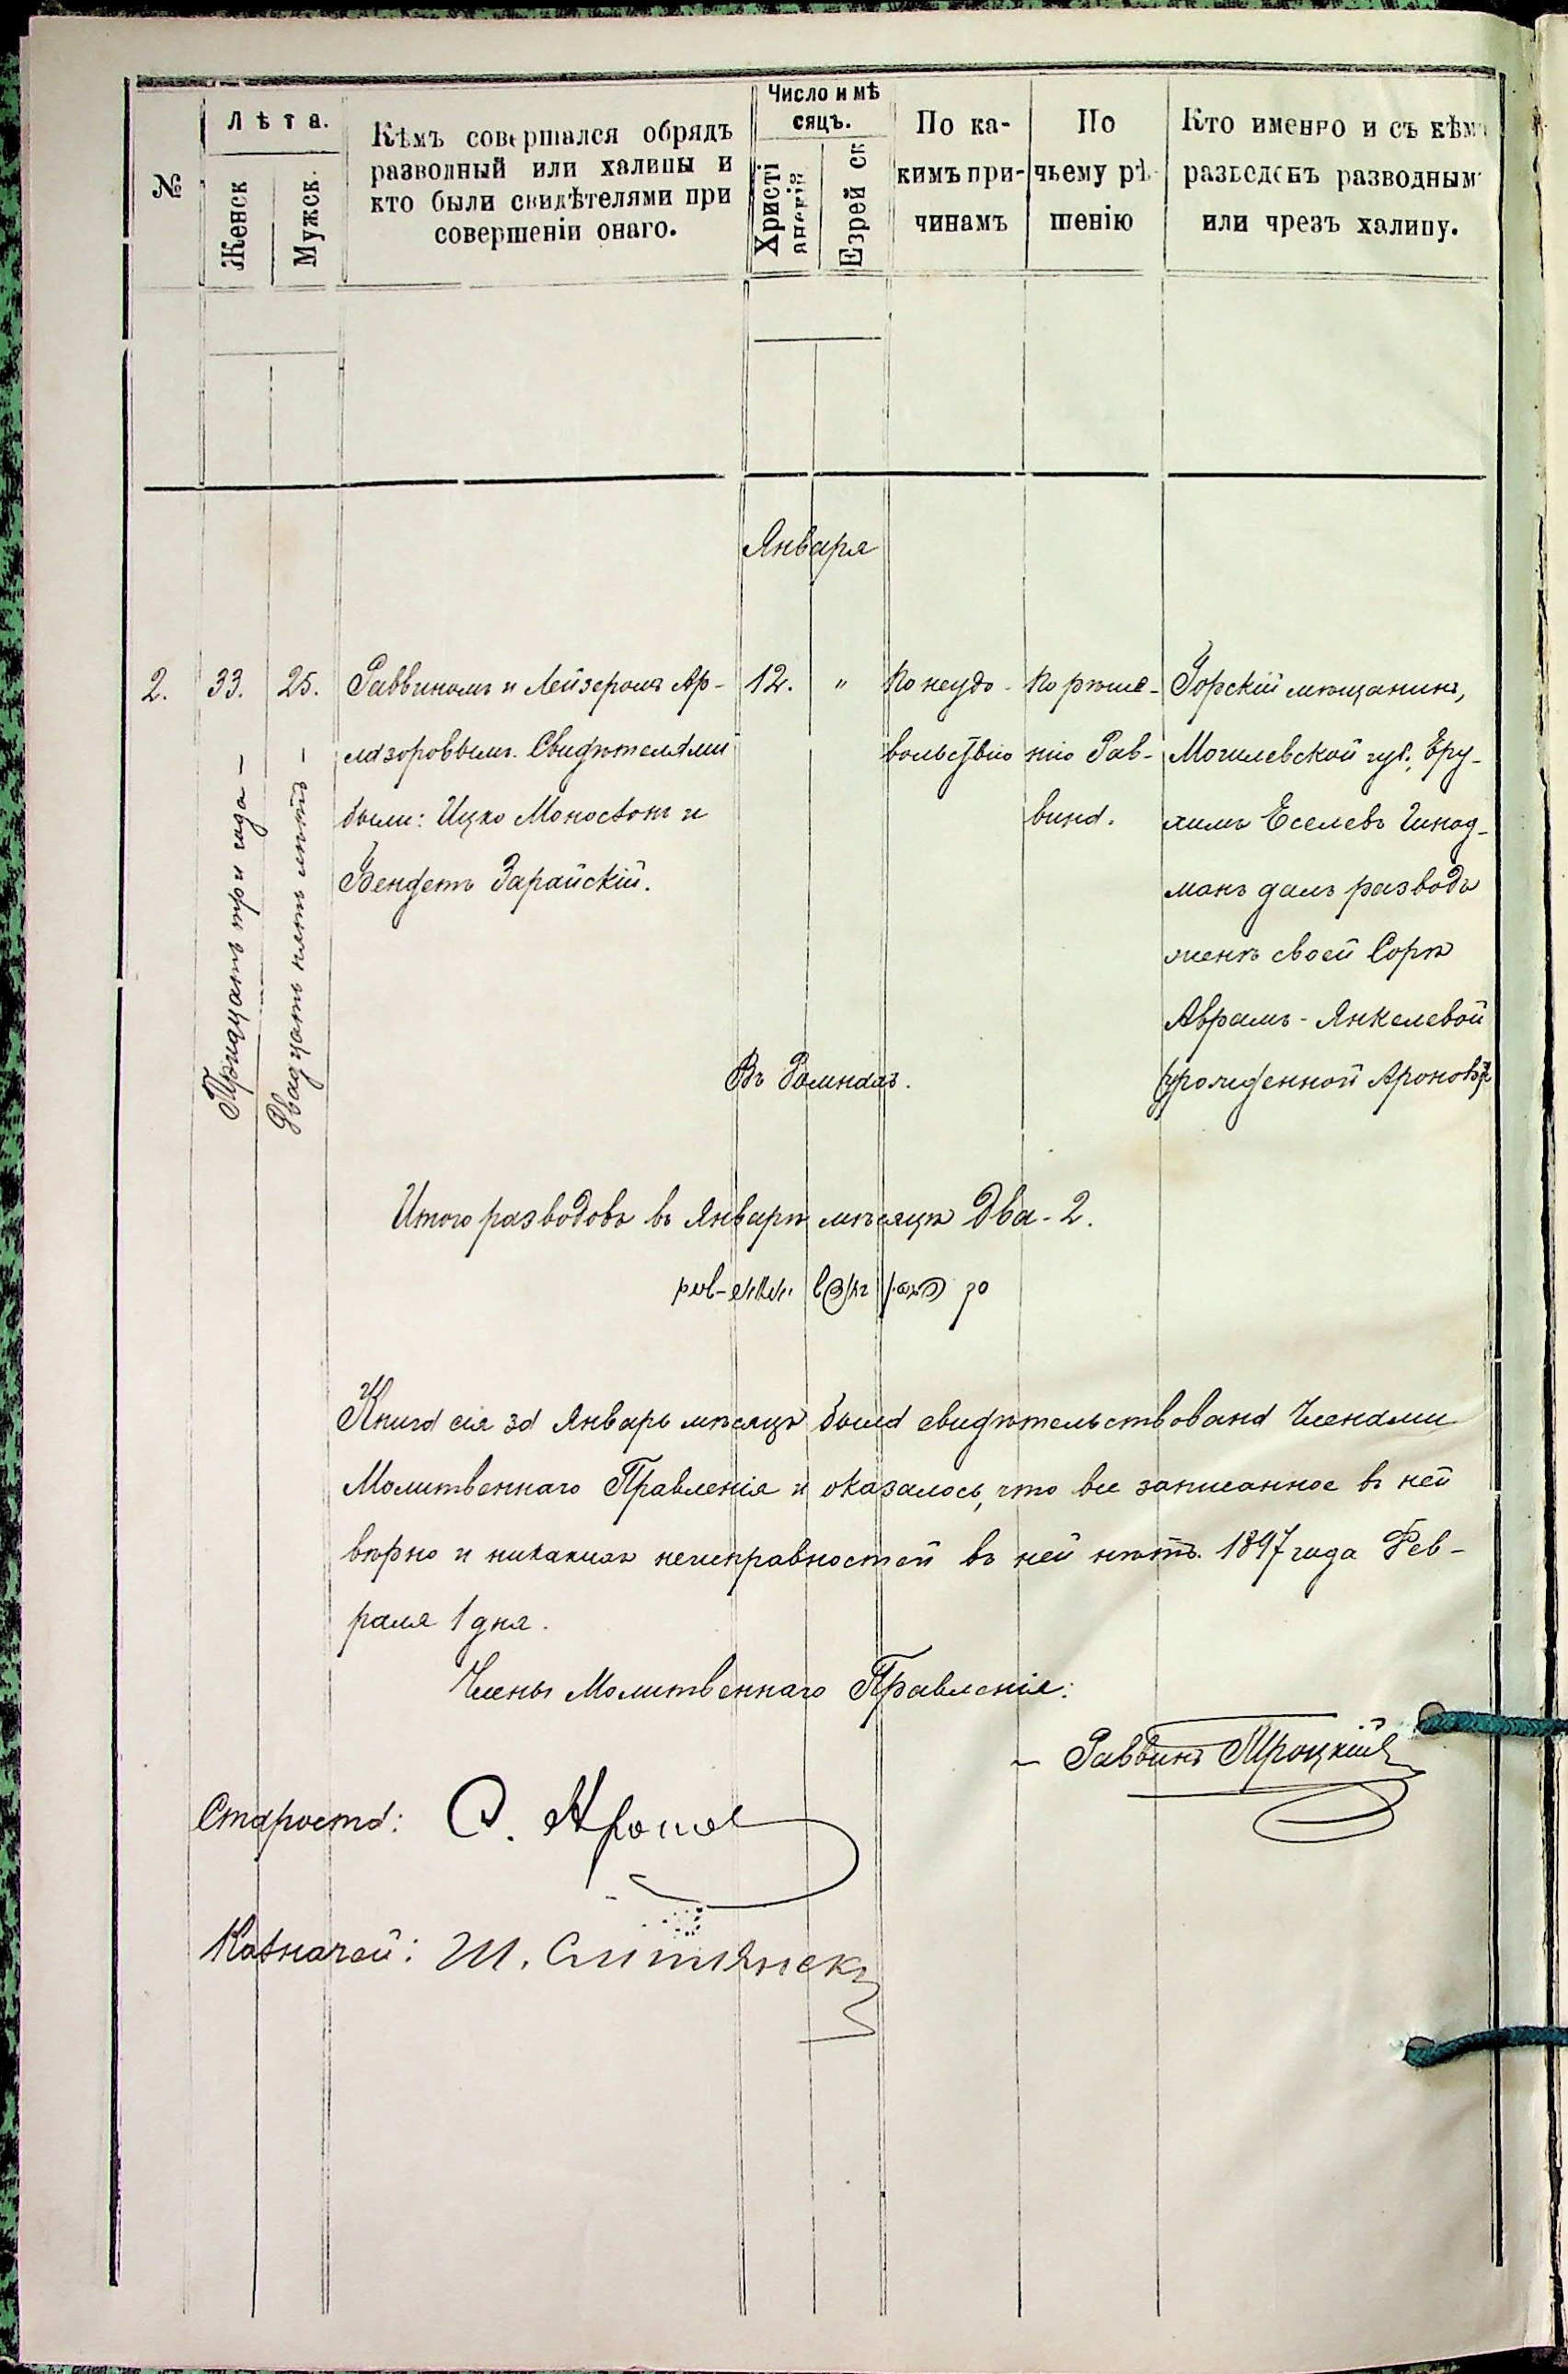 №
Лѣта.
Женск
Мужск.
Кѣмъ совершался обрядъ
разводный или халицы и
кто были свидѣтелями при
совершеніи онаго.
Число и мѣ
сяцъ.
Христі
анскій
Еврей ск
По ка-
кимъ при-
чинамъ
По
чьему рѣ-
шенію
Кто именно и съ кѣмъ
разведенъ разводным
или чрезъ халицу.
Января
2.
33.
Тридцать три года —
25.
Двадцать пять лѣтъ —
Раввиномъ и Лейзеромъ Ар-
лазоровымъ. Свидѣтелями
были: Ицко Монастонъ и
Бендетъ Зарайскій.
12.
"
По неудо-
вольствію
По рѣше-
нію Рав-
вина.
Горскій мѣщанинъ,
Могилевской губ., Еру-
химъ Еселевъ Гинод-
манъ далъ разводъ
женѣ своей Сорѣ
Аврамъ-Янкелевой
урожденной Ароновой
Въ Ромнахъ.
Итого разводовъ въ Январѣ мѣсяцѣ два - 2.
Книга сія за Январь мѣсяцъ была свидѣтельствована Членами
Молитвеннаго Правленія и оказалось, что все записанное въ ней
вѣрно и никакихъ неисправностей въ ней нѣтъ. 1897 года Фев-
раля 1 дня.
Члены Молитвеннаго Правленія:
Раввинъ Троцкій
Староста: С. Аронов
Казначей: Ш.